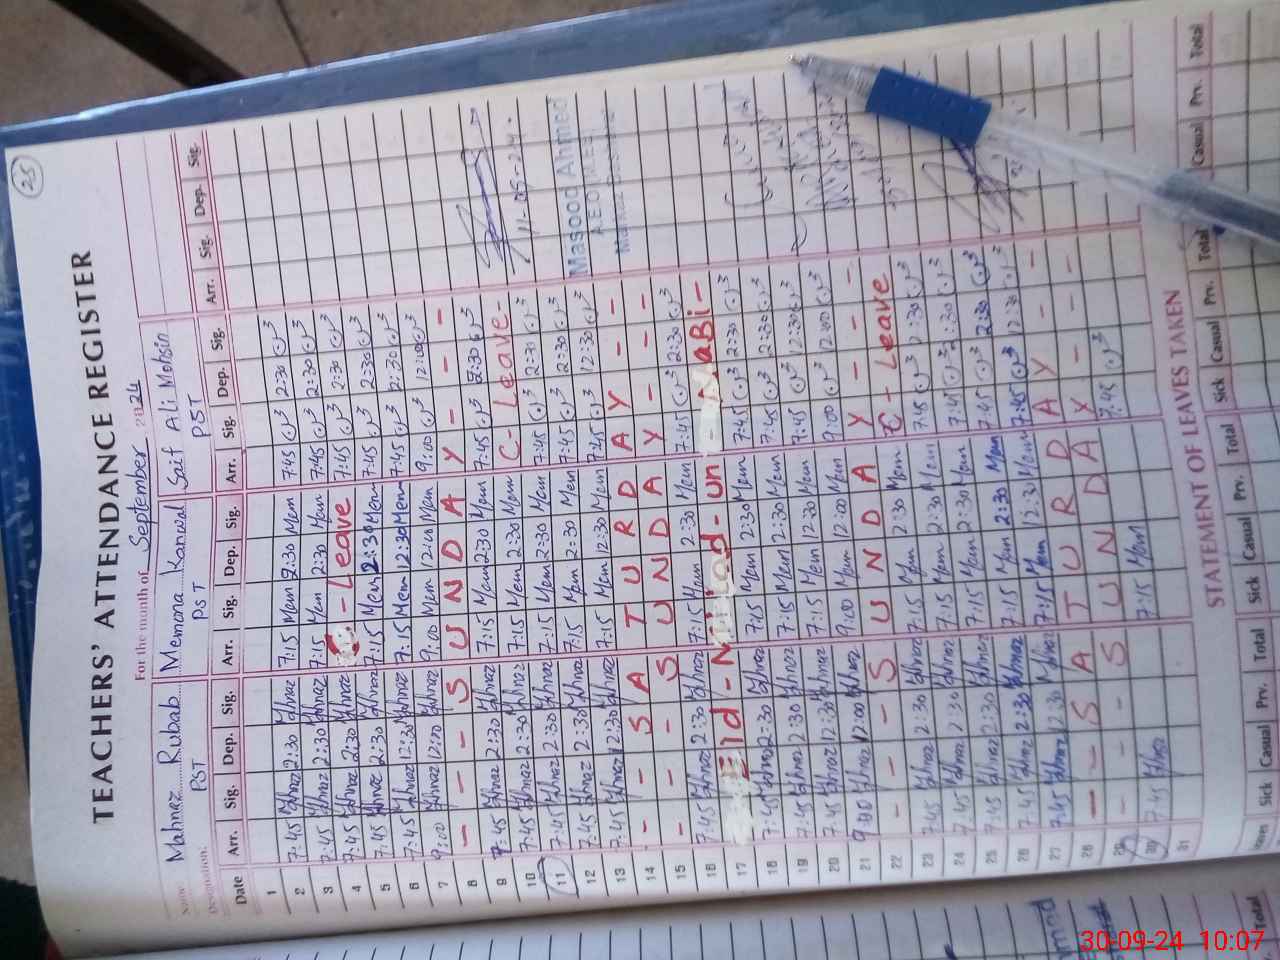 25
TEACHERS' ATTENDANCE REGISTER
For the month of September 2024
Name: Mahnaz Rubab Memona Kanwal Saif Ali Mohsin
Designation: PST PST PST
Date Arr. Sig. Dep. Sig. Arr. Sig. Dep. Sig. Arr. Sig. Dep. Sig. Arr. Sig. Dep. Sig.
1
2 7:45 Mahnaz 2:30 Mahnaz 7:15 Mem 2:30 Mem 7:45 2:30
3 7:45 Mahnaz 2:30 Mahnaz 7:15 Mem 2:30 Mem 7:45 2:30
4 7:45 Mahnaz 2:30 Mahnaz C - Leave 7:45 2:30
5 7:45 Mahnaz 2:30 Mahnaz 7:15 Mem 2:30 Mem 7:45 2:30
6 7:45 Mahnaz 12:30 Mahnaz 7:15 Mem 12:30 Mem 7:45 2:30
7 9:00 Mahnaz 12:00 Mahnaz 9:00 Mem 12:00 Mem 9:00 12:00
8 - - - S U N D A Y - - -
9 7:45 Mahnaz 2:30 Mahnaz 7:15 Mem 2:30 Mem 7:45 2:30
10 7:45 Mahnaz 2:30 Mahnaz 7:15 Mem 2:30 Mem C - Leave -
11 7:45 Mahnaz 2:30 Mahnaz 7:15 Mem 2:30 Mem 7:45 2:30
12 7:45 Mahnaz 2:30 Mahnaz 7:15 Mem 2:30 Mem 7:45 2:30
13 7:45 Mahnaz 12:30 Mahnaz 7:15 Mem 12:30 Mem 7:45 12:30
14 - - S A T U R D A Y - -
15 - - - S U N D A Y - - -
16 7:45 Mahnaz 2:30 Mahnaz 7:15 Mem 2:30 Mem 7:45 12:30
17 Eid - Milad - un - NaBi -
18 7:45 Mahnaz 2:30 Mahnaz 7:15 Mem 2:30 Mem 7:45 2:30
19 7:45 Mahnaz 2:30 Mahnaz 7:15 Mem 2:30 Mem 7:45 2:30
20 7:45 Mahnaz 12:30 Mahnaz 7:15 Mem 12:30 Mem 7:45 12:30
21 9:00 Mahnaz 12:00 Mahnaz 9:00 Mem 12:00 Mem 9:00 12:00
22 - - - S U N D A Y - - -
23 7:45 Mahnaz 2:30 Mahnaz 7:15 Mem 2:30 Mem C - Leave
24 7:45 Mahnaz 2:30 Mahnaz 7:15 Mem 2:30 Mem 7:45 2:30
25 7:45 Mahnaz 2:30 Mahnaz 7:15 Mem 2:30 Mem 7:45 2:30
26 7:45 Mahnaz 2:30 Mahnaz 7:15 Mem 2:30 Mem 7:45 2:30
27 7:45 Mahnaz 12:30 Mahnaz 7:15 Mem 12:30 Mem 7:45 12:30
28 - - S A T U R D A Y - -
29 - - - S U N D A Y - - -
30 7:45 Mahnaz 7:15 Mem 7:45
31
11-09-24.
Masood Ahmed
AEO
STATEMENT OF LEAVES TAKEN
Sick Casual Prv. Total Sick Casual Prv. Total Sick Casual Prv. Total Casual Prv. Total
30-09-24 10:07